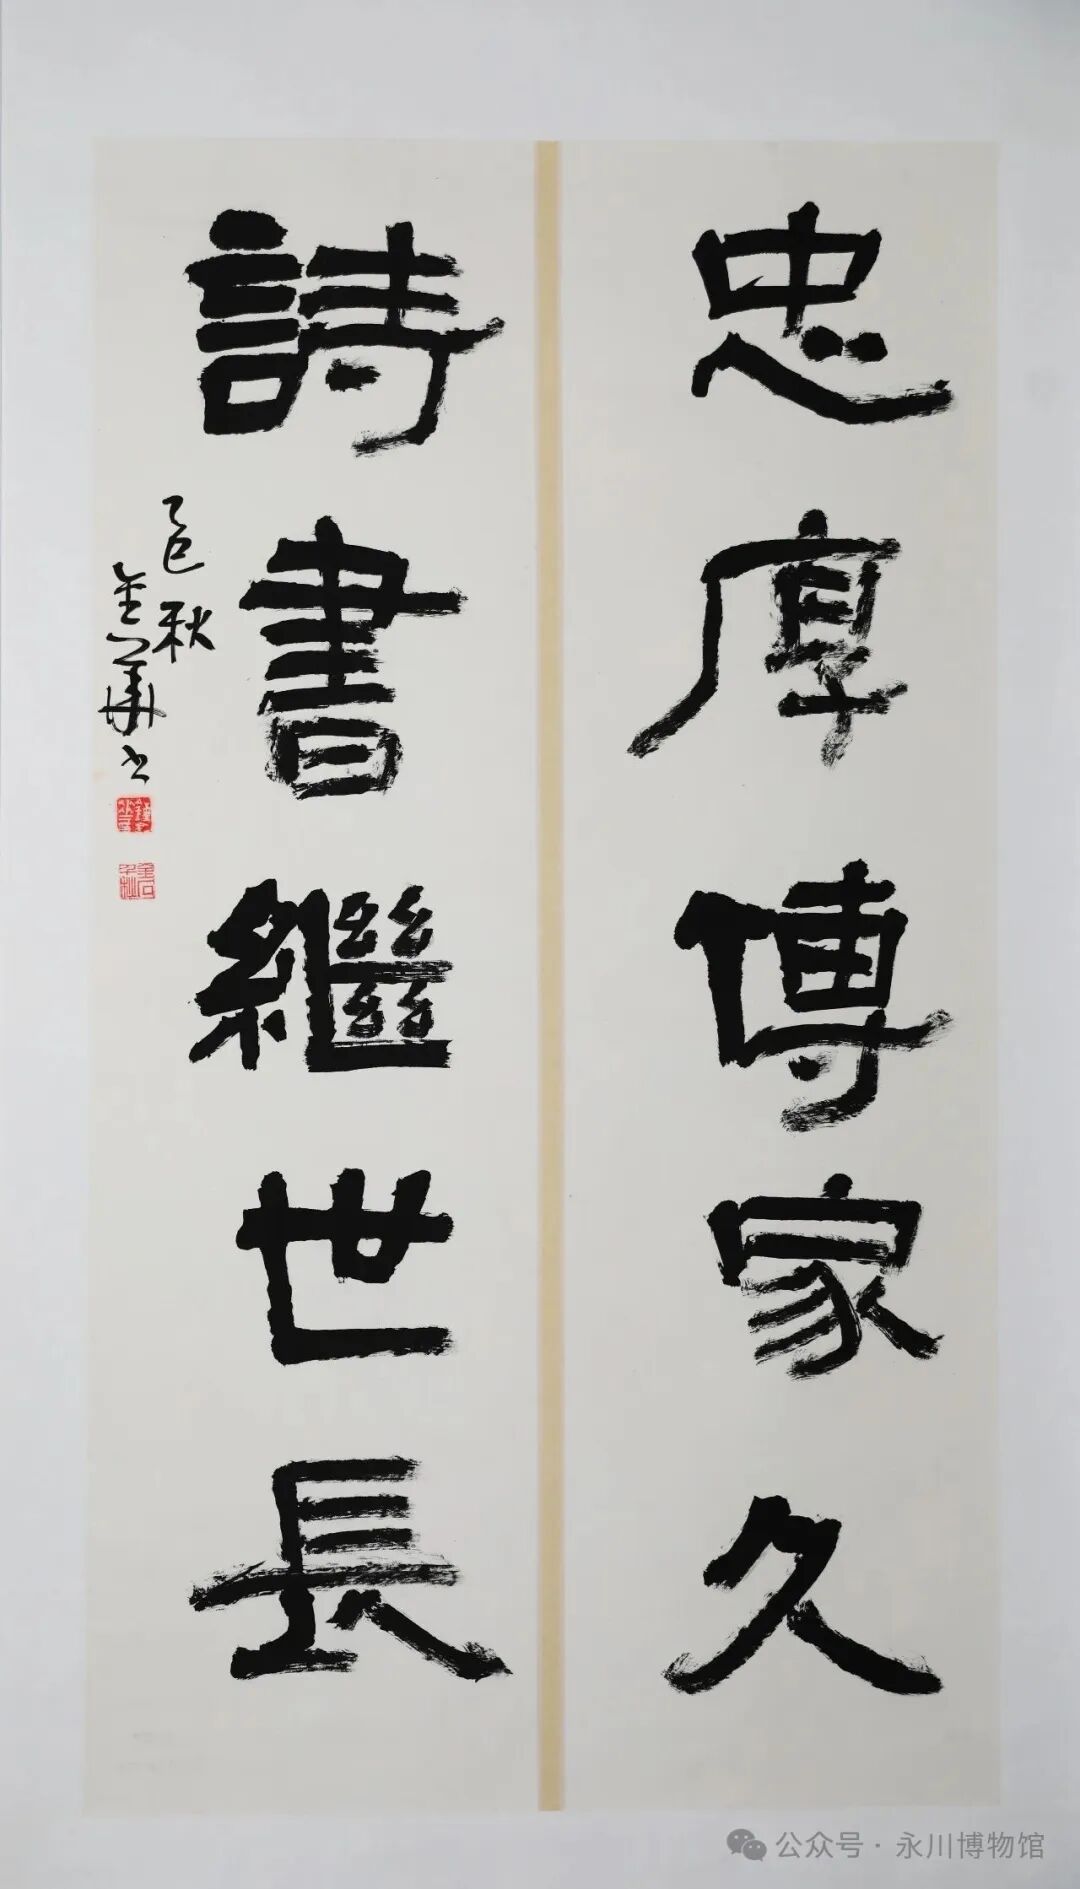 忠厚傳家久
詩書繼世長
乙巳秋
金華书
公众号·永川博物馆